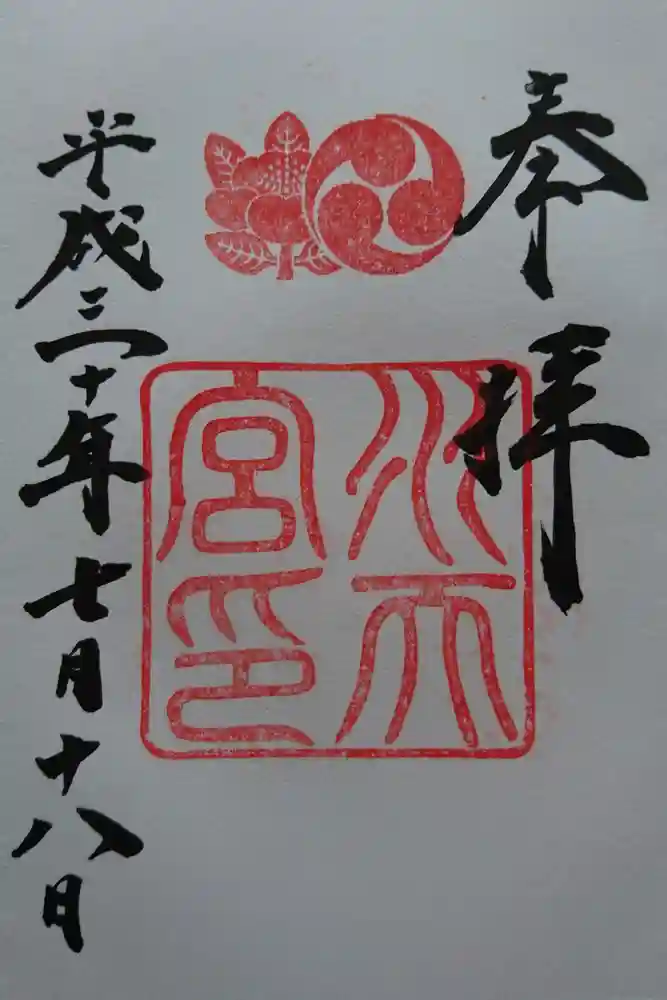 奉拝
水天
宮印
平成三十年七月十八日